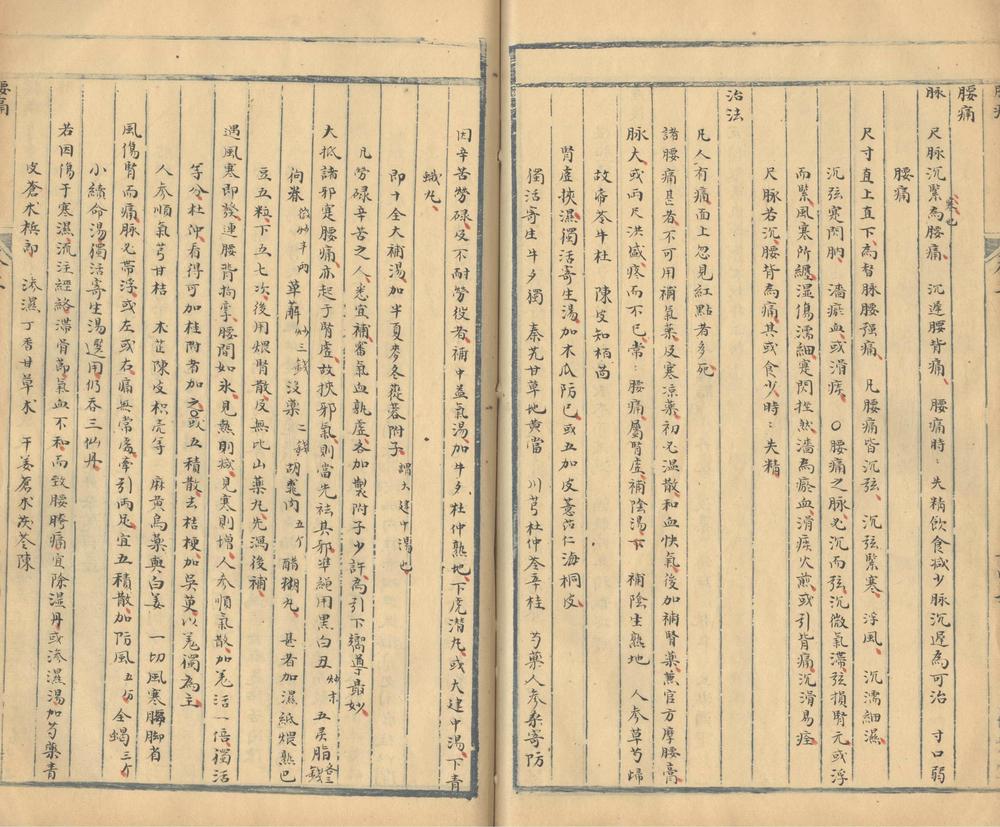 腰痛
脉　尺脉沉緊為腰痛　沉遲腰背痛　腰痛時〻失精飲食减少脉沉遲為可治　寸口弱
腰痛
尺寸直上直下為督脉腰强痛　凡腰痛皆沉弦　沉弦緊寒　浮風　沉濡細濕
沉弦寒閃肭　濇瘀血或滑痰　○腰痛之脉必沉而弦沉微氣滯弦損腎元或浮
而緊風寒所纏濕傷濡細寔閃挫然濇為瘀血滑痰火煎或引背痛沉滑易痊
尺脉若沉腰背為痛其或食少時〻失精
治法
凡人有痛面上忽見紅點者多死
諸腰痛甚者不可用補氣藥及寒凉藥初必温散和血快氣後加補腎藥蕙官方摩腰膏
脉大或兩尺洪盛疼而不已常〻腰痛屬腎虚補陰湯下　補陰生熟地　人參草芍歸
故帝苓牛杜　陳皮知栢茴
腎虚挾濕獨活寄生湯加木瓜防巳或五加皮薏苡仁海桐皮
獨活寄生牛夕獨　秦艽甘草地黄當　川芎杜仲苓辛桂　芍藥人參桑寄防
因辛苦勞碌及不耐勞役者補中益氣湯加牛夕杜仲熟地下虎潛丸或大建中湯下青
蛾丸
即十全大補湯加半夏麥冬蓯蓉附子謂大建中湯也
凡勞碌辛苦之人悉宜補番氣血孰虚各加製附子少許為引下嚮導最妙
大抵諸邪寔腰痛亦起于腎虚故挾邪氣則當先祛其邪準繩用黑白丑炒末五灵脂各三錢
狗脊　萆薢炒三錢沒藥二錢胡桃肉五个醋糊丸　甚者加濕紙煨熟巴
豆五粒下五七次後用煨腎散及無比山藥丸先瀉後補
遇風寒即發連腰背拘挛腰間如氷見熱則减見寒則增人參順氣散加羗活一倍獨活
等分杜仲看得可加桂附者加之或五積散去桔梗加吳萸以羗獨為主
人參順氣芎甘桔　木芷陳皮枳壳等　麻黄烏藥與白姜　一切風寒腰脚省
風傷腎而痛脉必帶浮或左或右痛無常處牽引兩足宜五積散加防風五分全蝎三个
小續命湯獨活寄生湯選用仍吞三仙丹
若因傷于寒濕流注經絡滯骨節氣血不和而致腰胯痛宜除濕丹或滲濕湯加芍藥青
皮蒼术梹郎　滲濕丁香甘草术　干姜蒼术茯苓陳
腰痛